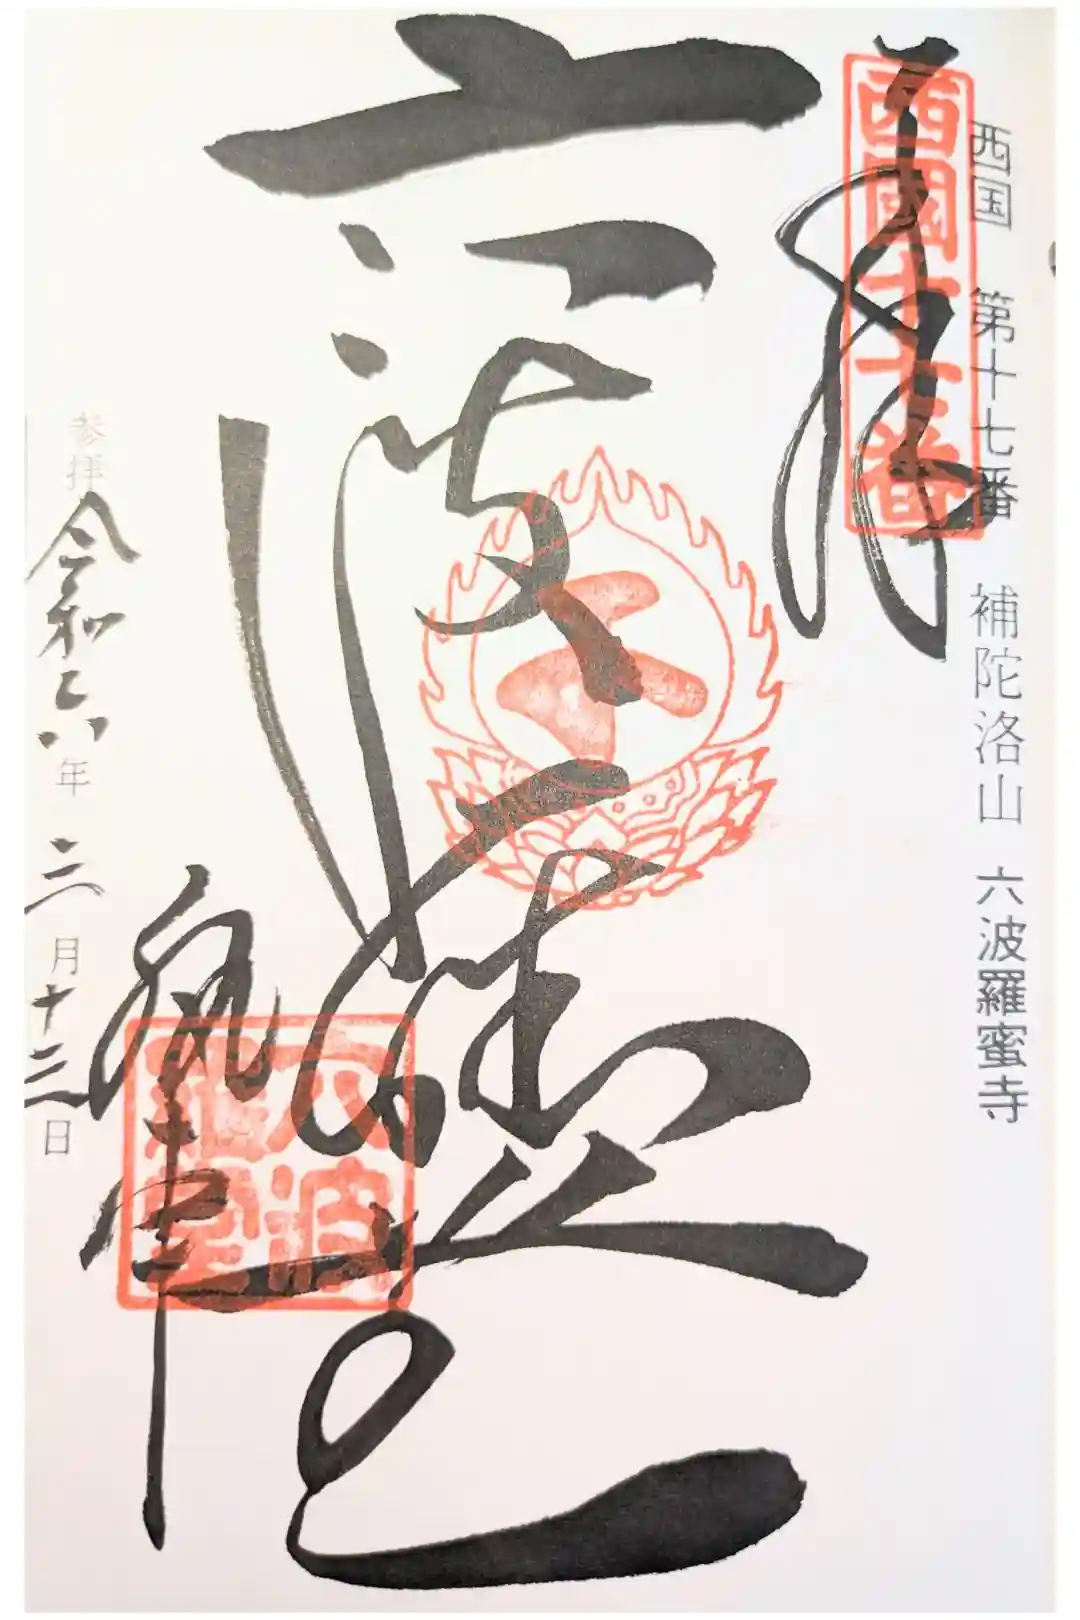 西国　第十七番　補陀洛山　六波羅蜜寺
西國十七番
拝
六波羅堂
六波羅堂
執事
参拝 令和六年三月十三日